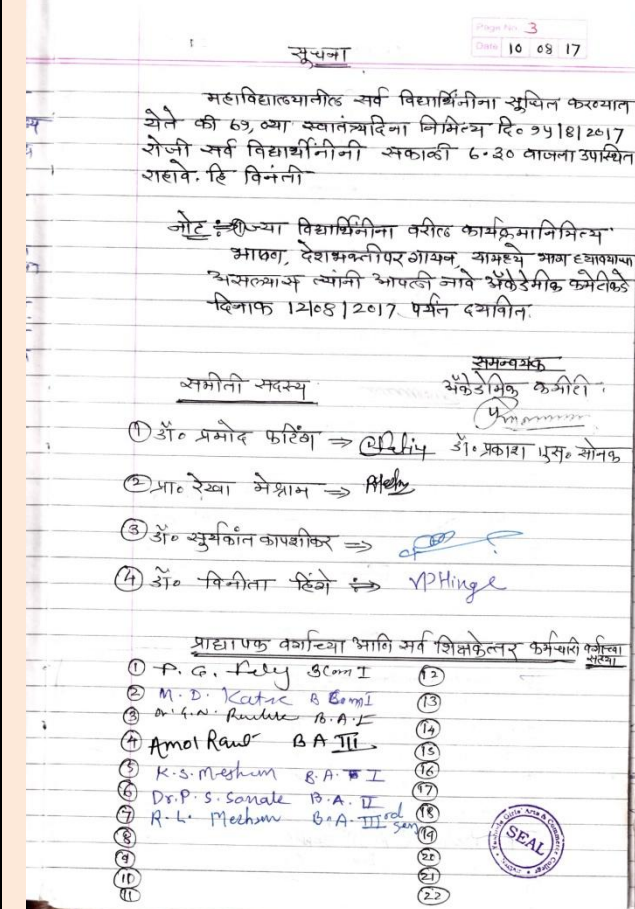 Page No. 3
Date 10 08 17
सूचना
महाविद्यालयातील सर्व विद्यार्थिनीना सुचित करण्यात
येते की 69, व्या स्वातंत्र्यदिना निमित्य दि० १५|8|2017
रोजी सर्व विद्यार्थीनीनी सकाळी 6.30 वाजता उपस्थित
राहावे. हि विनंती
नोट :- ज्या विद्यार्थिनीना वरील कार्यक्रमानिमित्य
भाषण, देशभक्तीपर गायन, यामध्ये भाग घ्यावयाचा
असल्यास त्यांनी आपली नावे अ‍ॅकेडेमीक कमेटीकडे
दिनाक 12/08|2017 पर्यंत दयावीत.
समन्वयक
समीती सदस्य
अ‍ॅकेडेमिक कमीटी.
① डॉ० प्रमोद फटिंग ⇒
डॉ० प्रकाश एस० सोनक
② प्रा० रेखा मेश्राम ⇒
③ डॉ० सुर्यकांत कापशीकर ⇒
④ डॉ० विनीता हिंगे ⇒ VPHinge
प्राध्यापक वर्गाच्या आणि सर्व शिक्षकेत्तर कर्मचारी वर्गाच्या
सहया
① P. G. BCom I ⑫
② M. D. Katre B Com I ⑬
③ Dr. G. N. B.A. I ⑭
④ Amol Raut B A III ⑮
⑤ K.S. Meshram B.A. I ⑯
⑥ Dr. P. S. Sonake B.A. II ⑰
⑦ R. L. Meshram B.A. IIIrd sem ⑱
⑧ ⑲
⑨ ⑳
⑩ ㉑
⑪ ㉒
Girls' Arts & Commerce College
SEAL